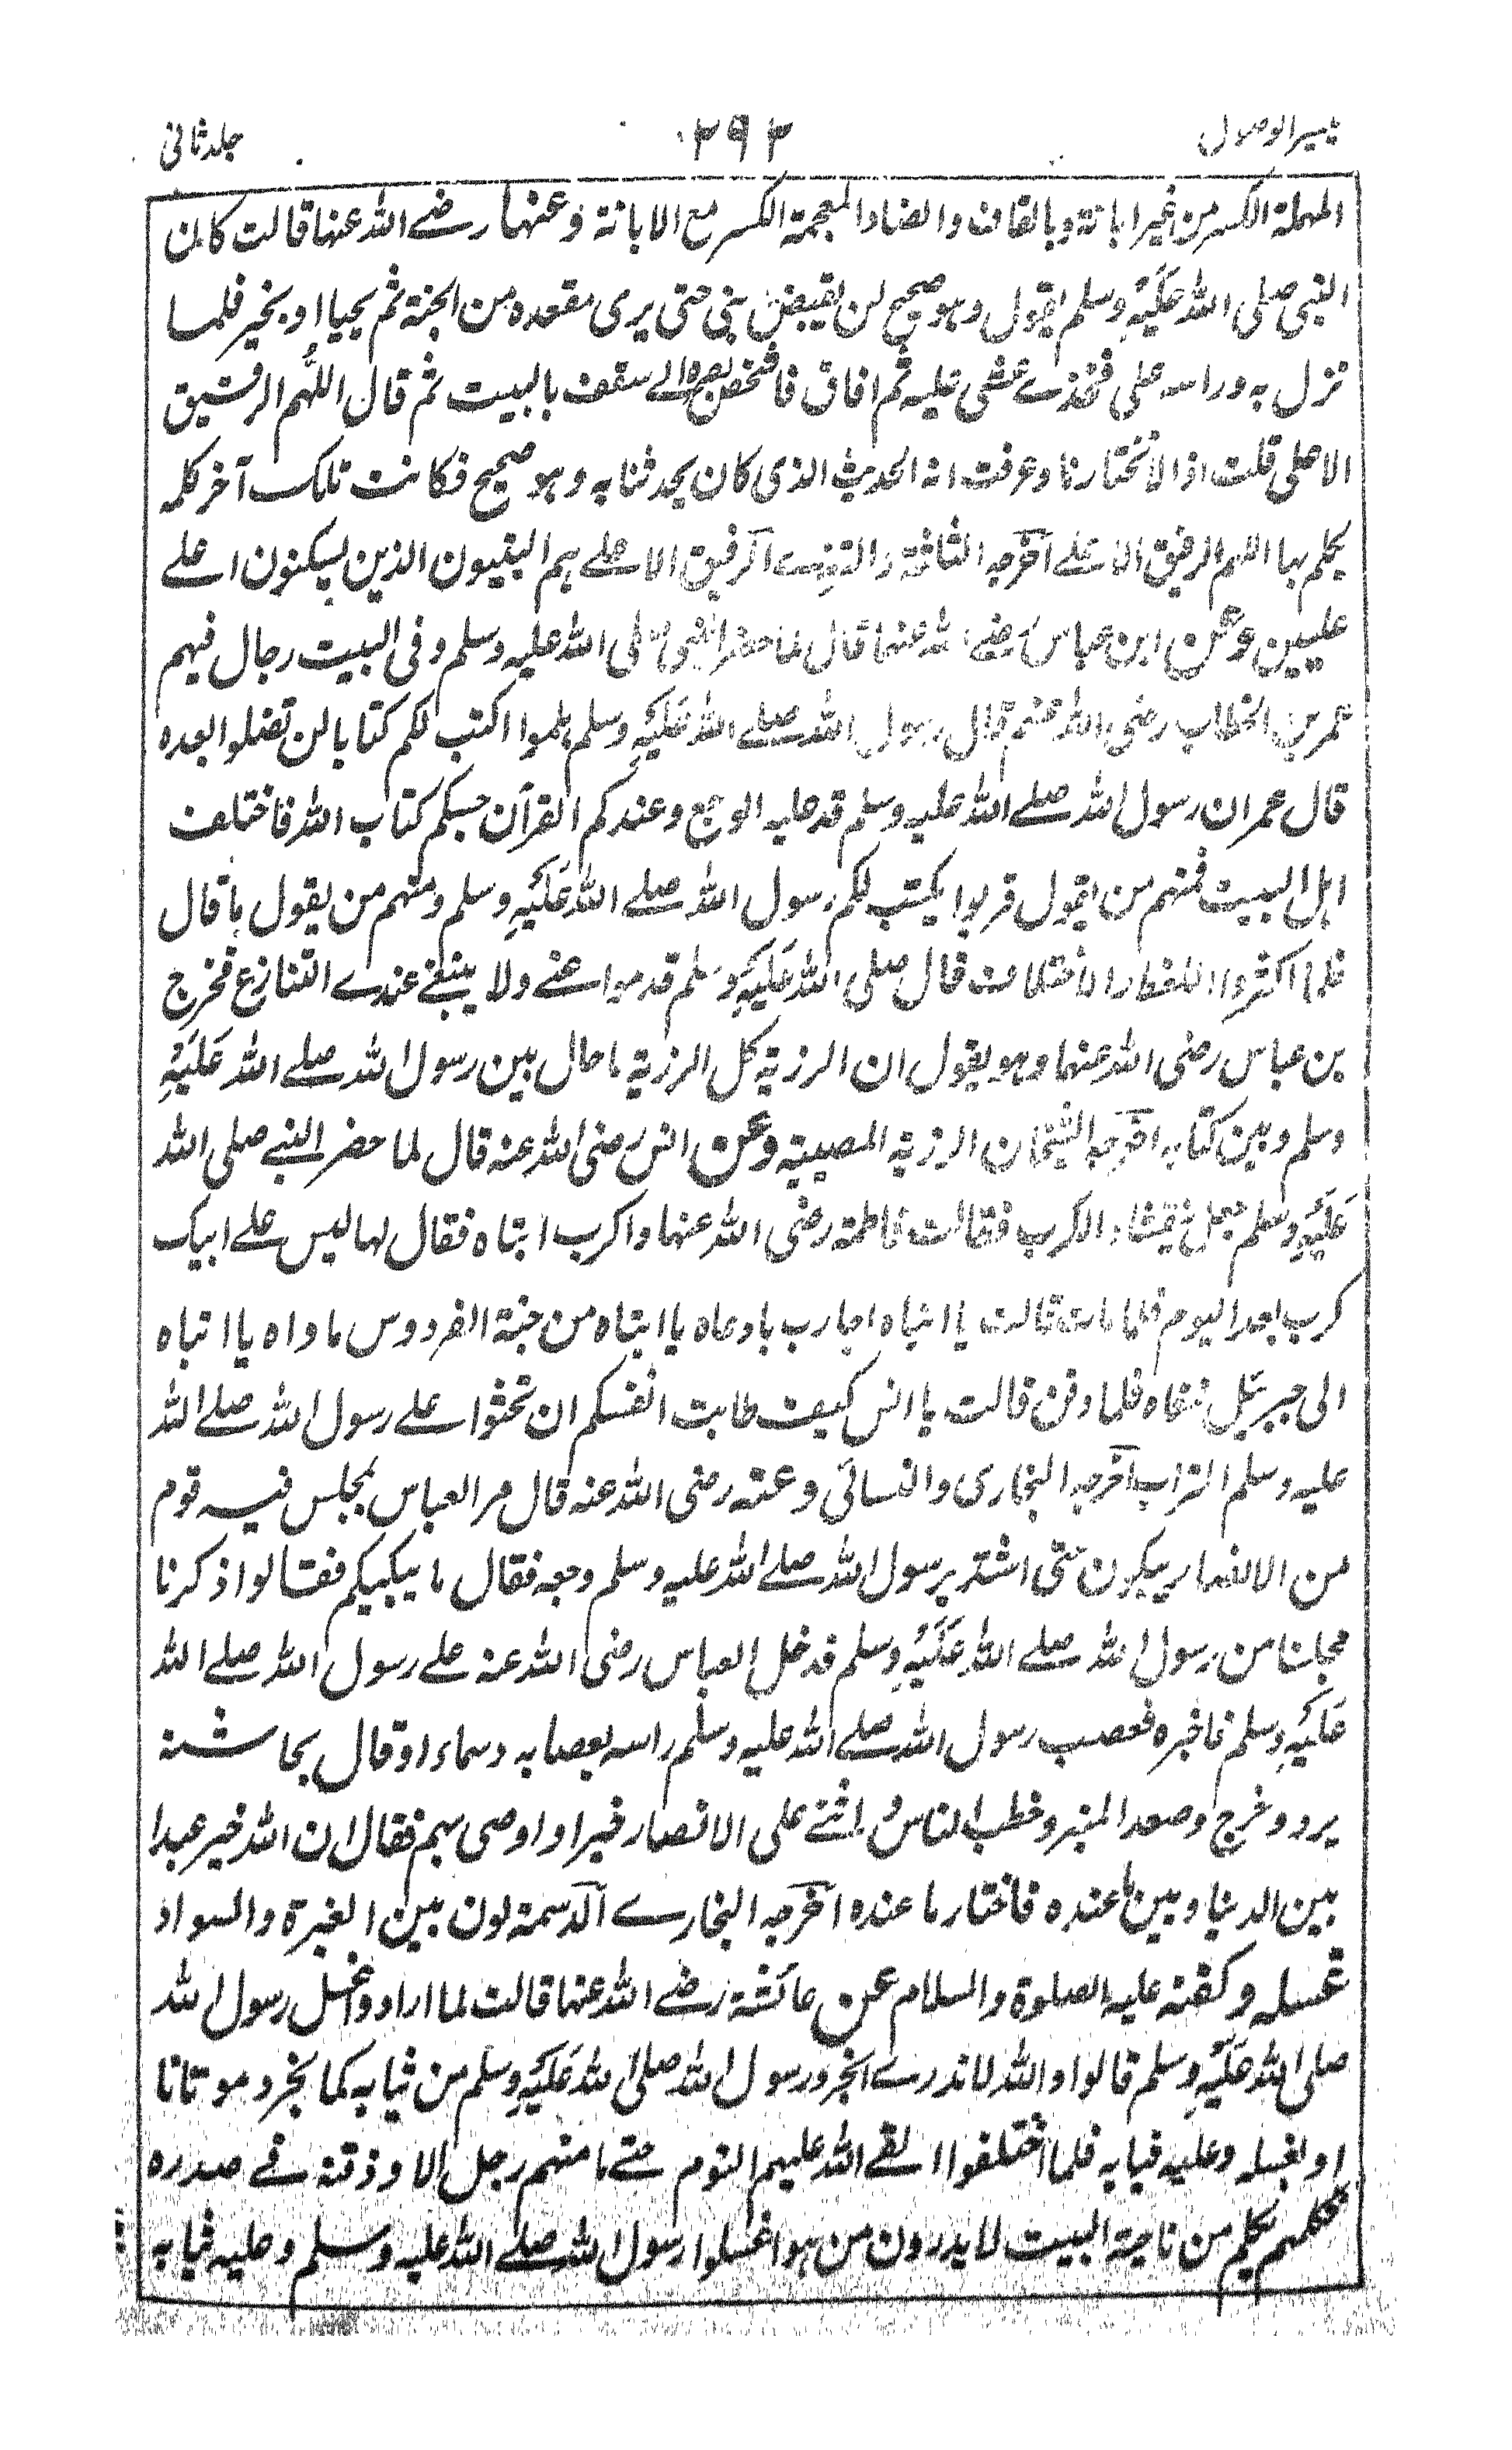 تيسير الوصول ٢٩٣ جلد ثانی
المهملة الكسر من غير ابانة وبالقاف والضاد المعجمة الكسر مع الابانة وعنها رضے الله عنها قالت كان
النبي صلى الله عَلَيْهِ وسلم يقول وهو صحيح لن يقبض نبي حتى يرى مقعده من الجنة ثم يحيا او يخير فلما
نزل به وراسه على فخذے غشى عليه ثم افاق فاشخص بصره الے سقف بالبيت ثم قال اللهم الرفيق
الاعلى قلت اذا لا تختارنا وعرفت انه الحديث الذى كان يحدثنا به وهو صحيح فكانت تلك آخر كلمة
تكلم بها اللهم الرفيق الاعلے اخرجه الثلاثة والترمذے الرفيق الاعلے هم النبيون الذين يسكنون اعلے
عليين وعن ابن عباس رضے الله عنهما قال لما حضر النبي صلى الله عليه وسلم وفى البيت رجال فيهم
عمر بن الخطاب رضى الله عنه قال رسول الله صلے الله عَلَيْهِ وسلم هلموا اكتب لكم كتابا لن تضلوا بعده
قال عمر ان رسول الله صلے الله عليه وسلم قد غلبه الوجع وعندكم القرآن حسبكم كتاب الله فاختلف
اهل البيت فمنهم من يقول قربوا يكتب لكم رسول الله صلے الله عَلَيْهِ وسلم ومنهم من يقول ما قال
فلما اكثروا اللغط والاختلاف قال صلى الله عَلَيْهِ وسلم قوموا عنے ولا ينبغے عندے التنازع فخرج
بن عباس رضى الله عنهما وهو يقول ان الرزية كل الرزية ما حال بين رسول الله صلے الله عَلَيْهِ
وسلم وبين كتابه اخرجه الشيخان الرزية المصيبة وعن انس رضى الله عنه قال لما حضر النبے صلى الله
عَلَيْهِ وسلم جعل يتغشاه الكرب فقالت فاطمة رضى الله عنها واكرب ابتاه فقال لها ليس علے ابيك
كرب بعد اليوم فلما مات قالت يا ابتاه اجاب ربا دعاه يا ابتاه من جنة الفردوس ماواه يا ابتاه
الى جبريل ننعاه فلما دفن قالت يا انس كيف طابت انفسكم ان تحثوا علے رسول الله صلے الله
عليه وسلم التراب اخرجه البخارى والنسائي وعنه رضى الله عنه قال مر العباس بمجلس فيه قوم
من الانصار يبكون حتى اشتد برسول الله صلے الله عليه وسلم وجعه فقال ما يبكيكم فقالوا ذكرنا
مجلسنا من رسول الله صلے الله عَلَيْهِ وسلم فدخل العباس رضى الله عنه علے رسول الله صلے الله
عَلَيْهِ وسلم فاخبره فعصب رسول الله صلے الله عليه وسلم راسه بعصابه دسماء او قال بحاشية
برد وخرج وصعد المنبر وخطب الناس واثنے على الانصار خيرا واوصى بهم فقال ان الله خير عبدا
بين الدنيا وبين ما عنده فاختار ما عنده اخرجه البخارے الدسمة لون بين الغبرة والسواد
غسله وكفنه عليه الصلوة والسلام عن عائشة رضے الله عنها قالت لما ارادوا غسل رسول الله
صلى الله عَلَيْهِ وسلم قالوا والله لا ندرے انجرد رسول الله صلى الله عَلَيْهِ وسلم من ثيابه كما نجرد موتانا
او نغسله وعليه ثيابه فلما اختلفوا القے الله عليهم النوم حتے ما منهم رجل الا وذقنه فے صدره
فكلمهم مكلم من ناحية البيت لا يدرون من هو اغسلوا رسول الله صلے الله عليه وسلم وعليه ثيابه